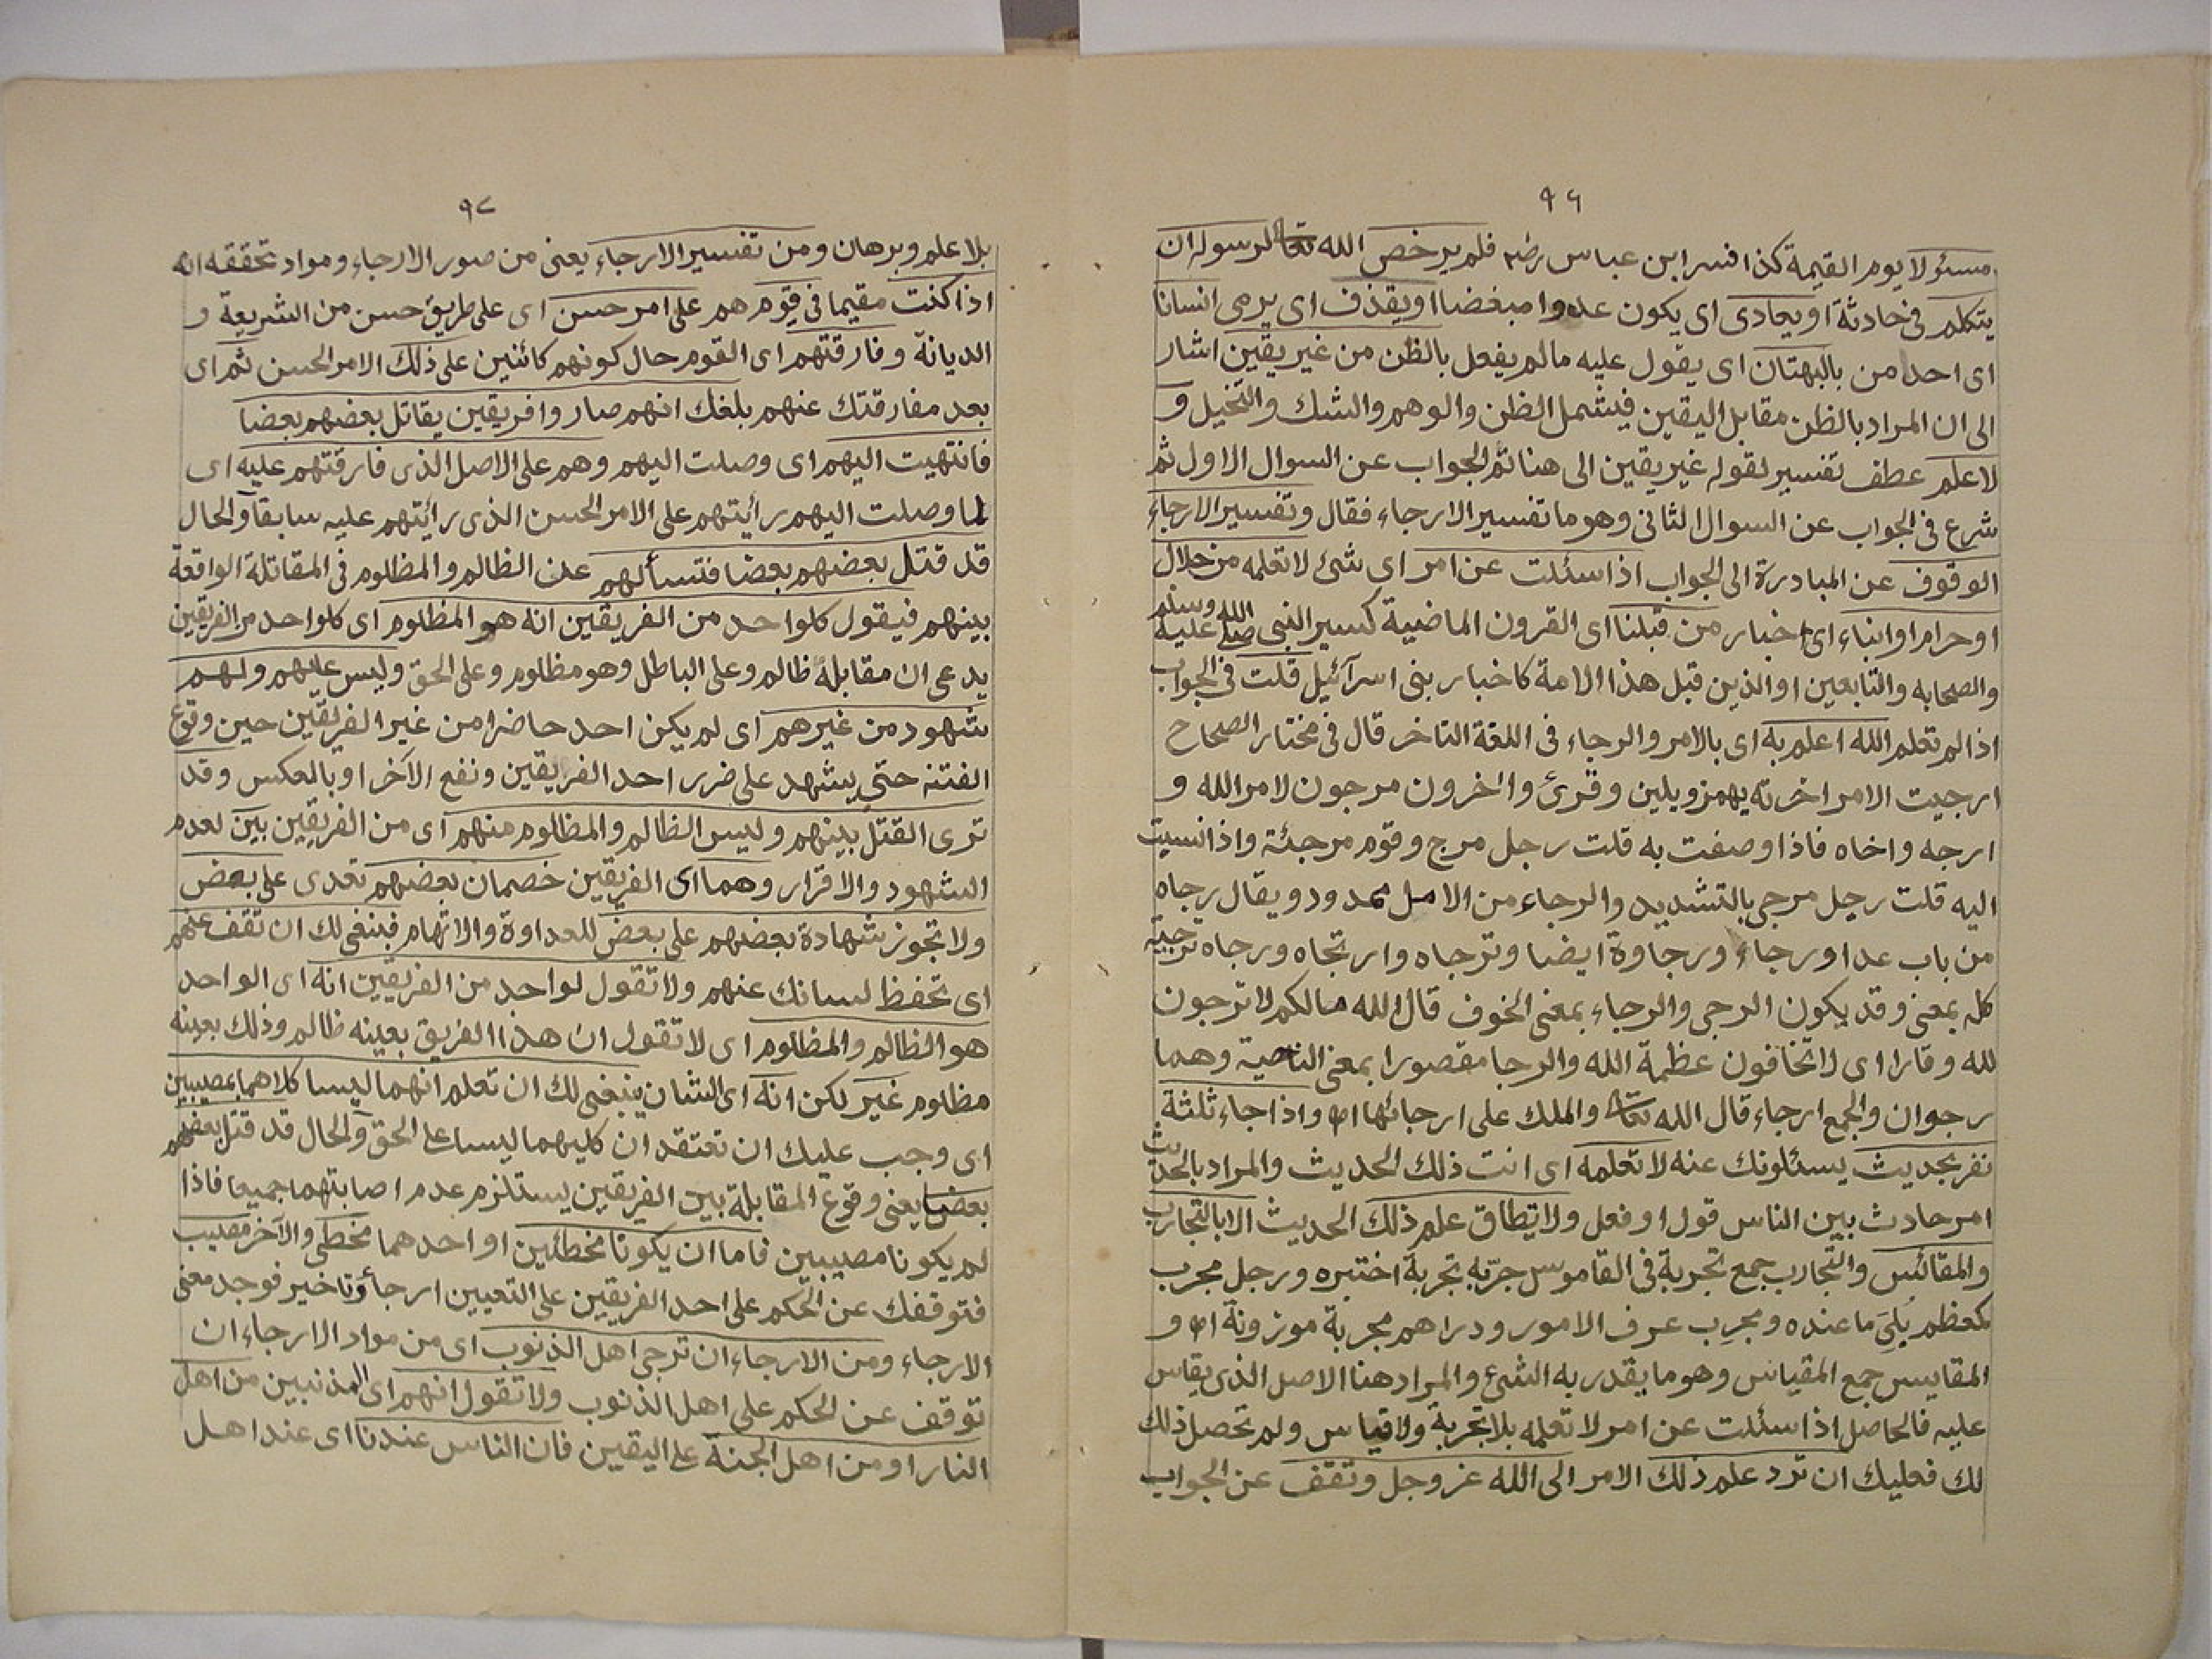 ٩٦
مسئولا يوم القيمة كذا فسر ابن عباس رضه فلم يرخص الله تعا لرسوله ان
يتكلم فى حادثة او يعادى اى يكون عدوا مبغضا او يقذف اى يرمى انسانا
اى احدا من بالبهتان اى يقول عليه ما لم يفعل بالظن من غير يقين اشار
الى ان المراد بالظن مقابل اليقين فيشمل الظن والوهم والشك والتخيل و
لا علم عطف تفسير لقوله غير يقين الى هنا تم الجواب عن السوال الاول ثم
شرع فى الجواب عن السوال الثانى وهو ما تفسير الارجاء فقال وتفسير الارجاء
الوقوف عن المبادرة الى الجواب اذا سئلت عن امر اى شئ لا تعلمه من حلال
او حرام او انباء اى اخبار من قبلنا اى القرون الماضية كسير النبى صلى الله عليه وسلم
والصحابه والتابعين او الذين قبل هذا الامة كاخبار بنى اسرآئيل قلت فى الجواب
اذا لم تعلم الله اعلم به اى بالامر والرجاء فى اللغة التاخر قال فى مختار الصحاح
ارجيت الامر اخرته يهمز ويلين وقرئ واخرون مرجون لامر الله و
ارجه واخاه فاذا وصفت به قلت رجل مرج وقوم مرجئة واذا نسبت
اليه قلت رجل مرجى بالتشديد والرجاء من الامل ممدود ويقال رجاه
من باب عدا ورجاء ورجاوة ايضا وترجاه وارتجاه ورجاه ترجية
كله بمعنى وقد يكون الرجى والرجاء بمعنى الخوف قال الله مالكم لا ترجون
لله وقارا اى لا تخافون عظمة الله والرجا مقصورا بمعنى الناحية وهما
رجوان والجمع ارجاء قال الله تعا والملك على ارجائها اه واذا جاء ثلثة
نفر بحديث يسئلونك عنه لا تعلمه اى انت ذلك الحديث والمراد بالحديث
امر حادث بين الناس قول او فعل ولا يطاق علم ذلك الحديث الا بالتجارب
والمقائس والتجارب جمع تجربة فى القاموس جربه تجربة اختبره ورجل مجرب
كمعظم بلى ما عنده ومجرب عرف الامور ودراهم مجربة موزونة اه و
المقايس جمع المقياس وهو ما يقدر به الشئ والمراد هنا الاصل الذى يقاس
عليه فالحاصل اذا سئلت عن امر لا تعلمه بلا تجربة ولا قياس ولم تحصل ذلك
لك فعليك ان ترد علم ذلك الامر الى الله عز وجل وتقف عن الجواب
٩٧
بلا علم وبرهان ومن تفسير الارجاء يعنى من صور الارجاء ومواد تحققه انه
اذا كنت مقيما فى قوم هم على امر حسن اى على طريق حسن من الشريعة و
الديانة وفارقتهم اى القوم حال كونهم كائنين على ذلك الامر الحسن ثم اى
بعد مفارقتك عنهم بلغك انهم صاروا فريقين يقاتل بعضهم بعضا
فانتهيت اليهم اى وصلت اليهم وهم على الاصل الذى فارقتهم عليه اى
لما وصلت اليهم رأيتهم على الامر الحسن الذى رأيتهم عليه سابقا والحال
قد قتل بعضهم بعضا فتسألهم عن الظالم والمظلوم فى المقاتلة الواقعة
بينهم فيقول كلواحد من الفريقين انه هو المظلوم اى كلواحد من الفريقين
يدعى ان مقابله ظالم وعلى الباطل وهو مظلوم وعلى الحق وليس عليهم ولهم
شهود من غيرهم اى لم يكن احد حاضرا من غير الفريقين حين وقوع
الفتنه حتى يشهد على ضرر احد الفريقين ونفع الآخر او بالعكس وقد
ترى القتل بينهم وليس الظالم والمظلوم منهم اى من الفريقين بين لعدم
الشهود والاقرار وهما اى الفريقين خصمان بعضهم تعدى على بعض
ولا تجوز شهادة بعضهم على بعض للعداوة والاتهام فينبغى لك ان تقف عنهم
اى تحفظ لسانك عنهم ولا تقول لواحد من الفريقين انه اى الواحد
هو الظالم والمظلوم اى لا تقول ان هذا الفريق بعينه ظالم وذلك بعينه
مظلوم غير لكن انه اى الشان ينبغى لك ان تعلم انهما ليسا كلاهما بمصيبين
اى وجب عليك ان تعتقد ان كليهما ليسا على الحق والحال قد قتل بعضهم
بعضا يعنى وقوع المقابلة بين الفريقين يستلزم عدم اصابتهما جميعا فاذا
لم يكونا مصيبين فاما ان يكونا مخطئين او احدهما مخطئ والآخر مصيب
فتوقفك عن الحكم على احد الفريقين على التعيين ارجاء وتاخير فوجد معنى
الارجاء ومن الارجاء ان ترجى اهل الذنوب اى من مواد الارجاء ان
توقف عن الحكم على اهل الذنوب ولا تقول انهم اى المذنبين من اهل
النار او من اهل الجنة على اليقين فان الناس عندنا اى عند اهل